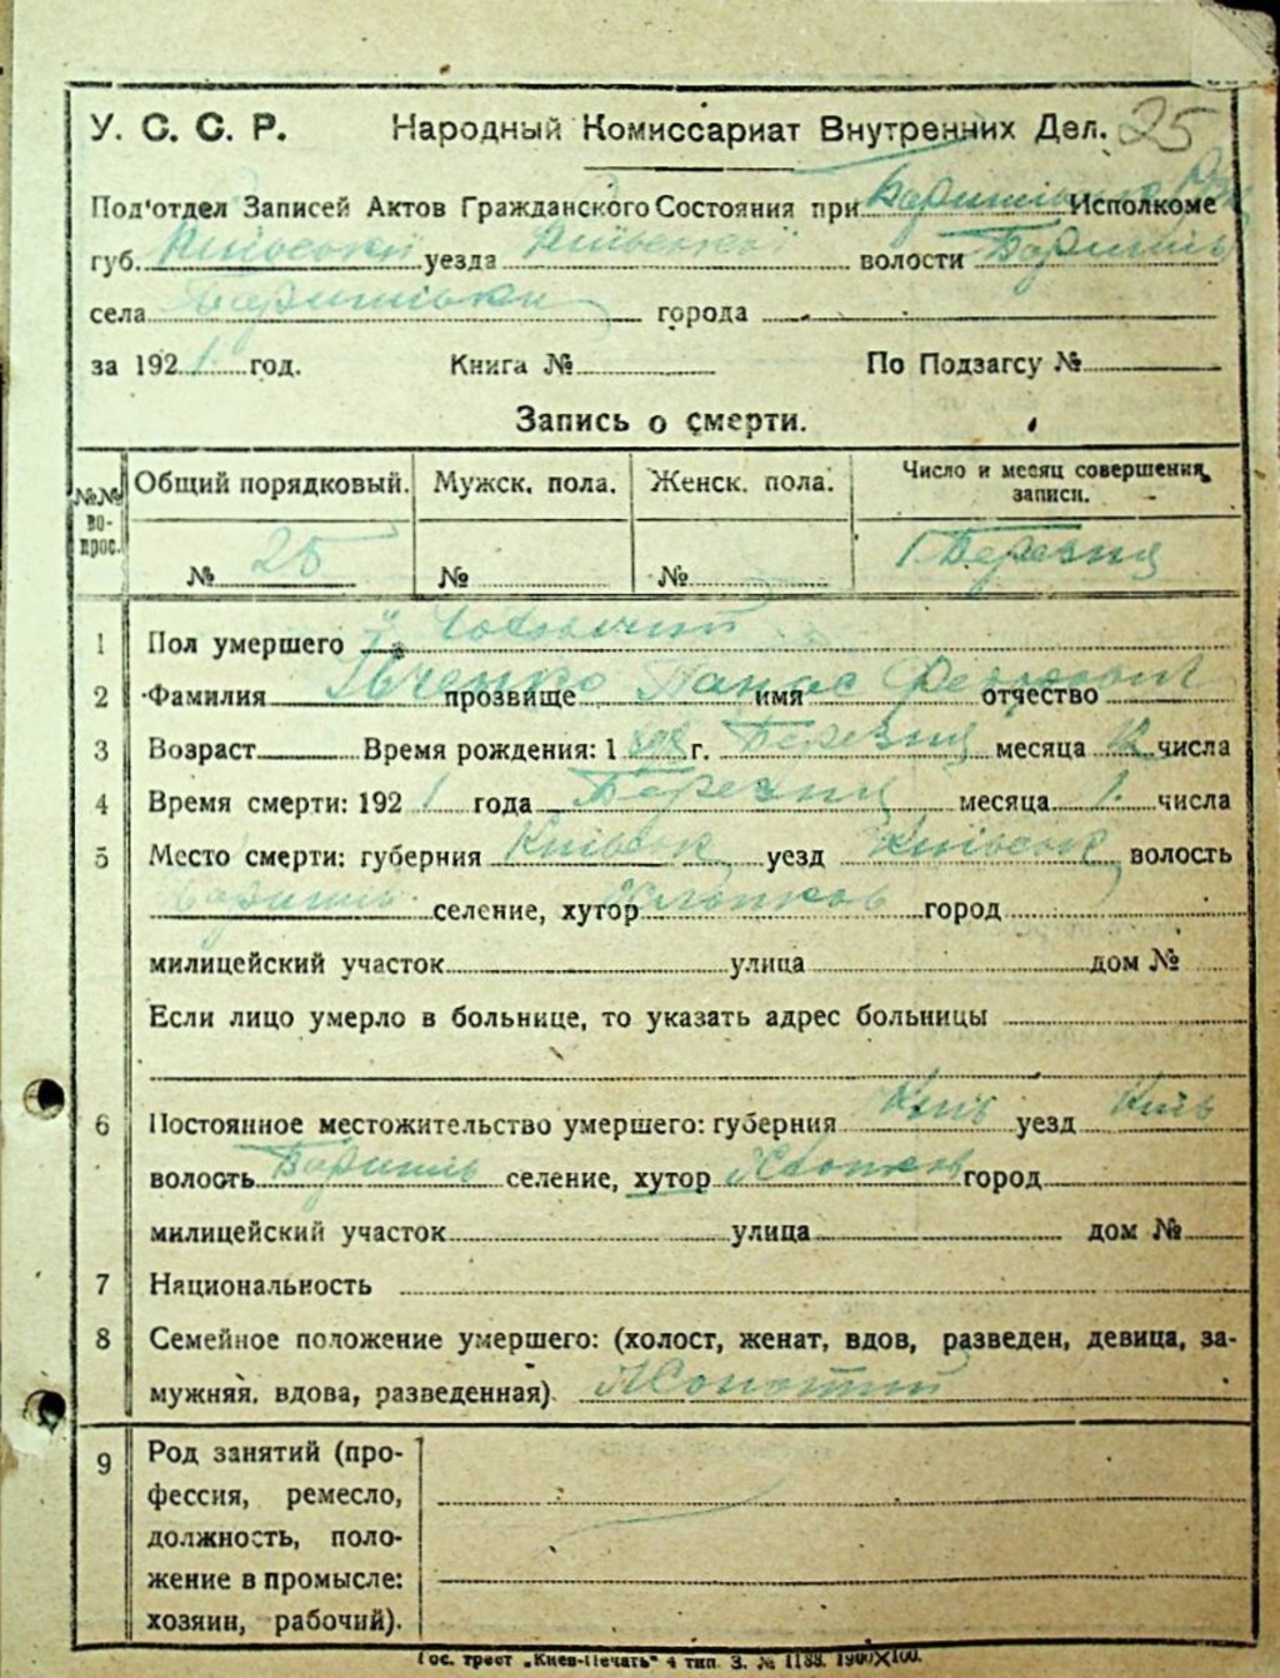 У. С. С. Р. Народный Комиссариат Внутренних Дел. 25
Под'отдел Записей Актов Гражданского Состояния при Исполкоме
губ. уезда волости Баришів
села Баришівки города
за 1921 год. Книга № По Подзагсу №
Запись о смерти.
№№ вопрос. Общий порядковый. Мужск. пола. Женск. пола. Число и месяц совершения записи.
№ 25 № № 1 Березня
1 Пол умершего Чоловічий
2 Фамилия Івченко прозвище Панас имя отчество
3 Возраст Время рождения: 1 г. Березня месяца числа
4 Время смерти: 1921 года Березня месяца 1. числа
5 Место смерти: губерния Київськ уезд Київськ волость
Баришів селение, хутор город
милицейский участок улица дом №
Если лицо умерло в больнице, то указать адрес больницы
6 Постоянное местожительство умершего: губерния Київ уезд Київ
волость Баришів селение, хутор город
милицейский участок улица дом №
7 Национальность
8 Семейное положение умершего: (холост, женат, вдов, разведен, девица, за-
мужняя, вдова, разведенная).
9 Род занятий (про-
фессия, ремесло,
должность, поло-
жение в промысле:
хозяин, рабочий).
Гос. трест „Киев-Печать" 4 тип. З. № 1188. 1900×100.